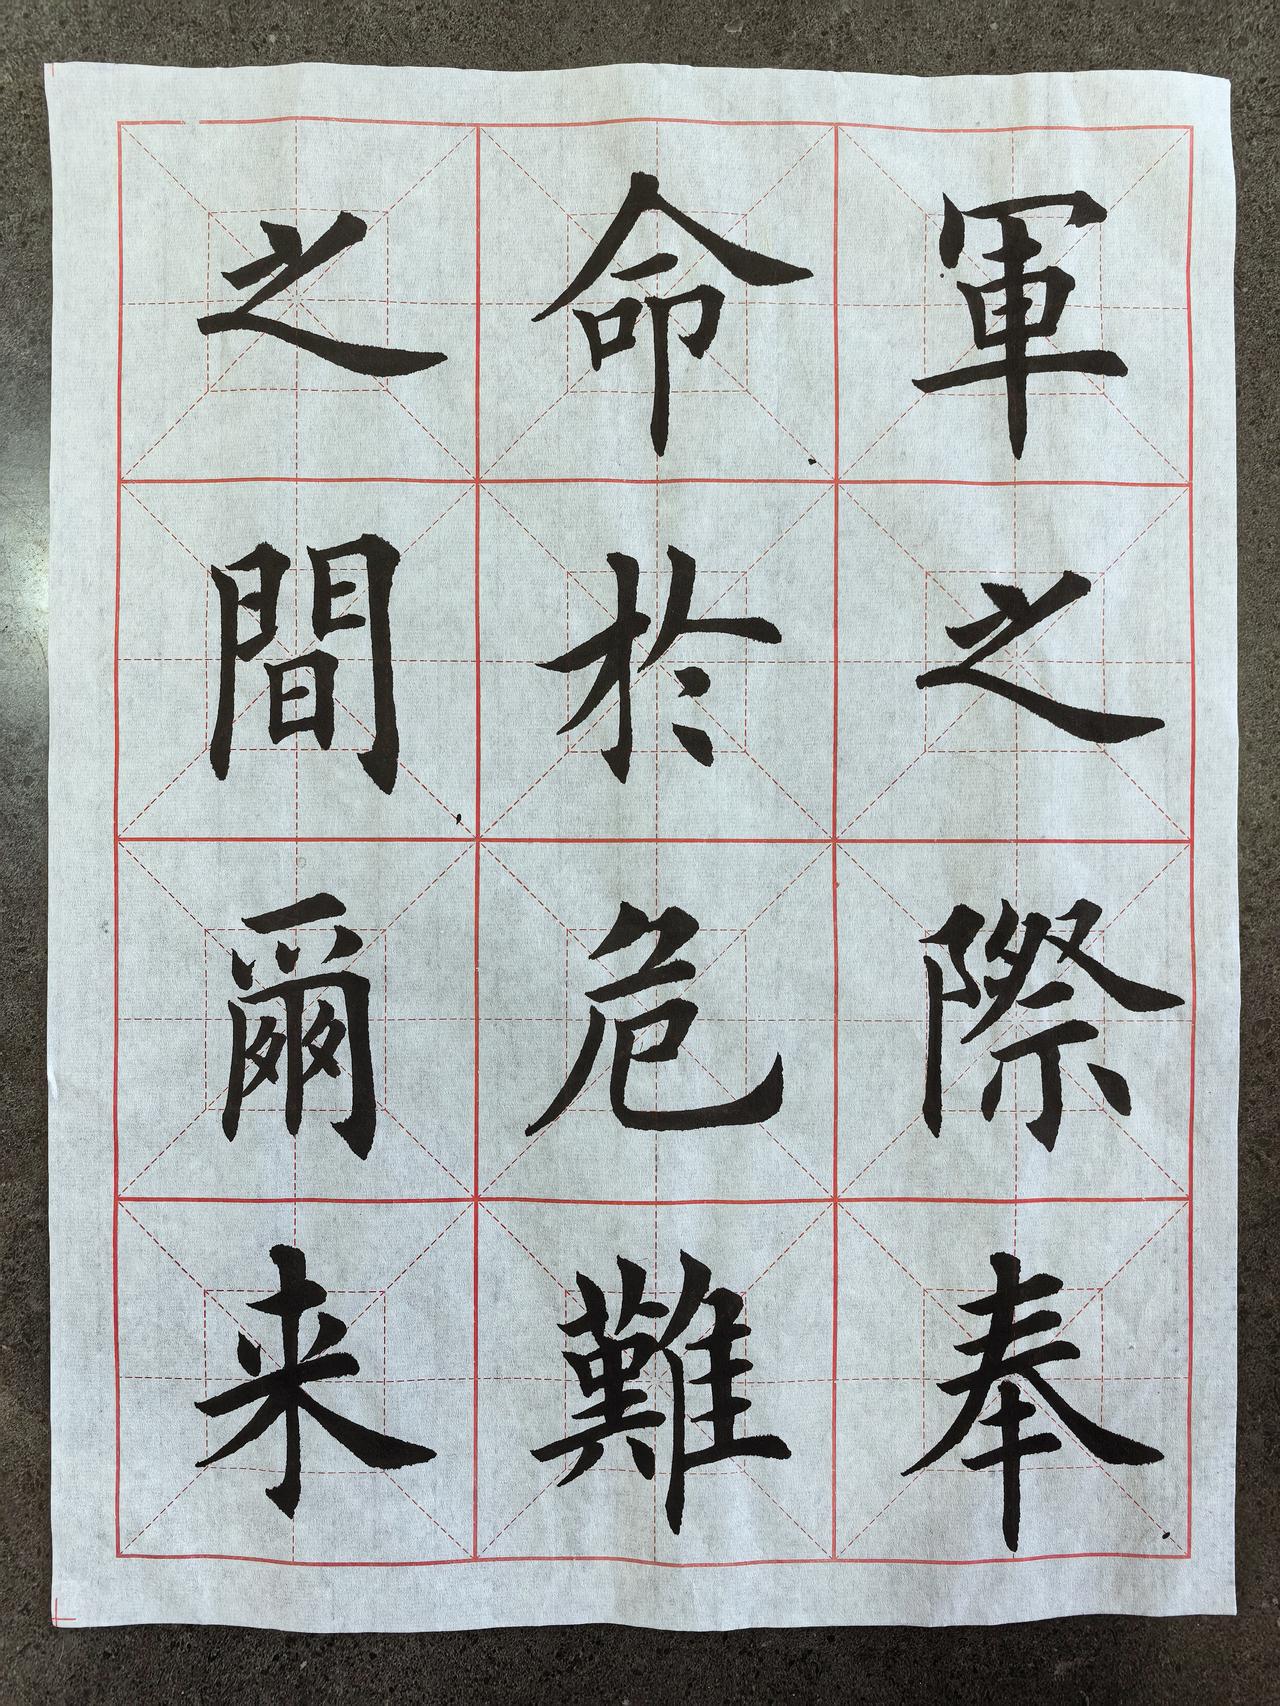 軍之際奉
命於危難
之間爾来